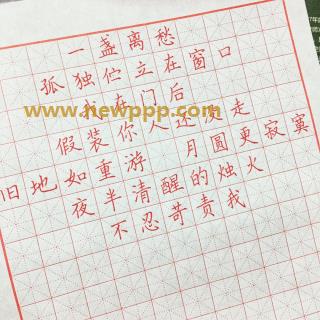 一盏离愁
孤独伫立在窗口
我在门后
www.newppp.com
假装你人还没走
旧地如重游 月圆更寂寞
夜半清醒的烛火
不忍苛责我